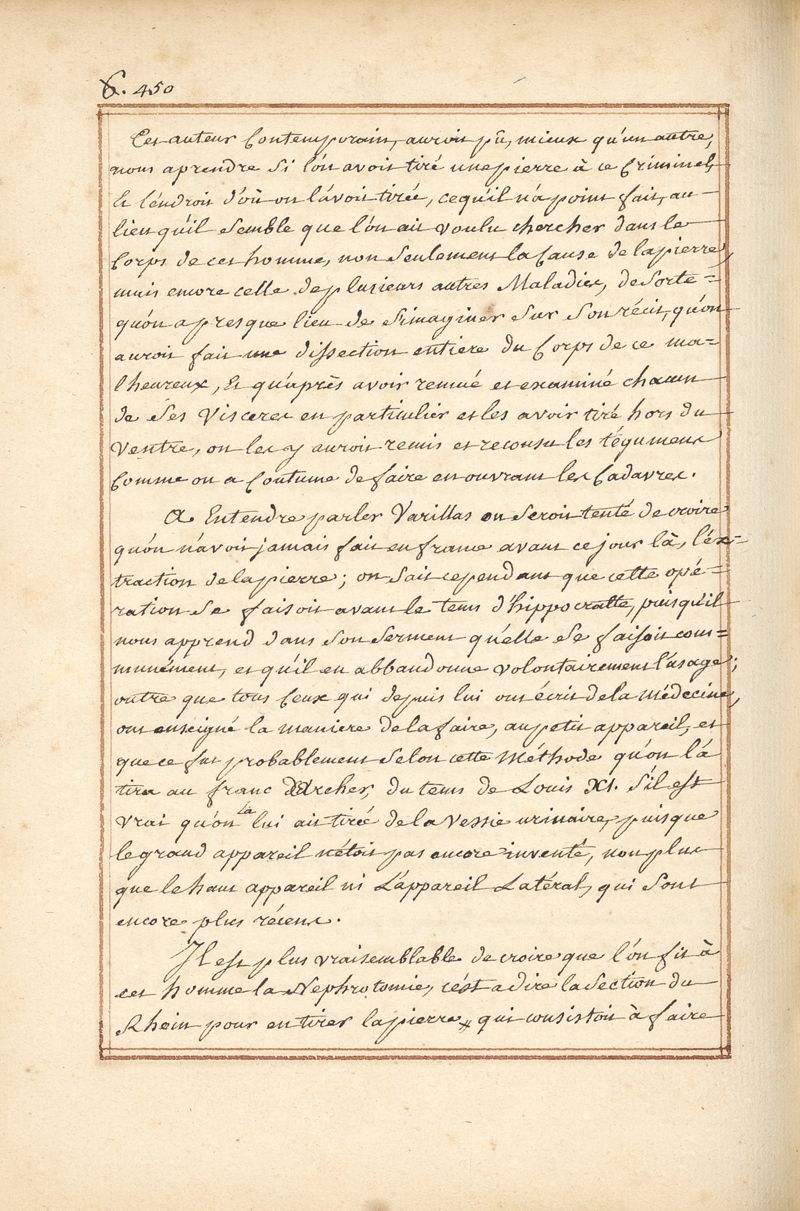 6. 450
Cet auteur Contemporain, auroit pû, mieux qu'un autre,
nous aprendre Si l'on avoit tiré une pierre à ce Criminel,
Et l'endroit d'où on l'avoit tirée, cequ'il n'a point fait, au
lieu qu'il Semble que l'on ait voulu chercher dans le
Corps de cet homme, non seulement la Cause de la pierre,
mais encore celle de plusieurs autres Maladies, de Sorte=
qu'on a presque lieu de S'imaginer Sur Son récit, qu'on
auroit fait une dissection entiere du Corps de ce ma=
lheureux, Et qu'après avoir remué et examiné chacun
de Ses Visceres en particulier et les avoir tiré hors du
Ventre, on les y auroit remis et recousu les tégumens
Comme on a Coutume de faire en ouvrant les Cadavres.
A Entendre parler Varillas on Seroit tenté de croire
qu'on n'avoit jamais fait en france avant ce jour là, l'ex=
traction de la pierre; on Sait cependant que cette opé=
ration Se faisoit avant le tems d'hippocratte, puisqu'il
nous apprend dans Son Serment qu'elle Se faisoit com=
munément, et qu'il en abbandonne volontairement l'usage;
outre que tous Ceux qui depuis lui ont écrit de la médecine,
ont enseigné la maniere de la faire, au petit appareil, et
que ce fut probablement Selon cette Méthode qu'on l'a
tira au franc Archer, du tems de Louis XI. S'il est
vrai qu'on la lui ait tirée de la Vessie urinaire, puisque
le grand appareil n'étoit pas encore inventé, non plus
que le haut appareil ni L'appareil Latéral, qui Sont
encore plus récens.
Il est plus vraisemblable de croire que l'on fit à
cet homme la Nephrotomie, c'est a dire la Section du
Rhein pour en tirer la pierre, qui consistoit à faire